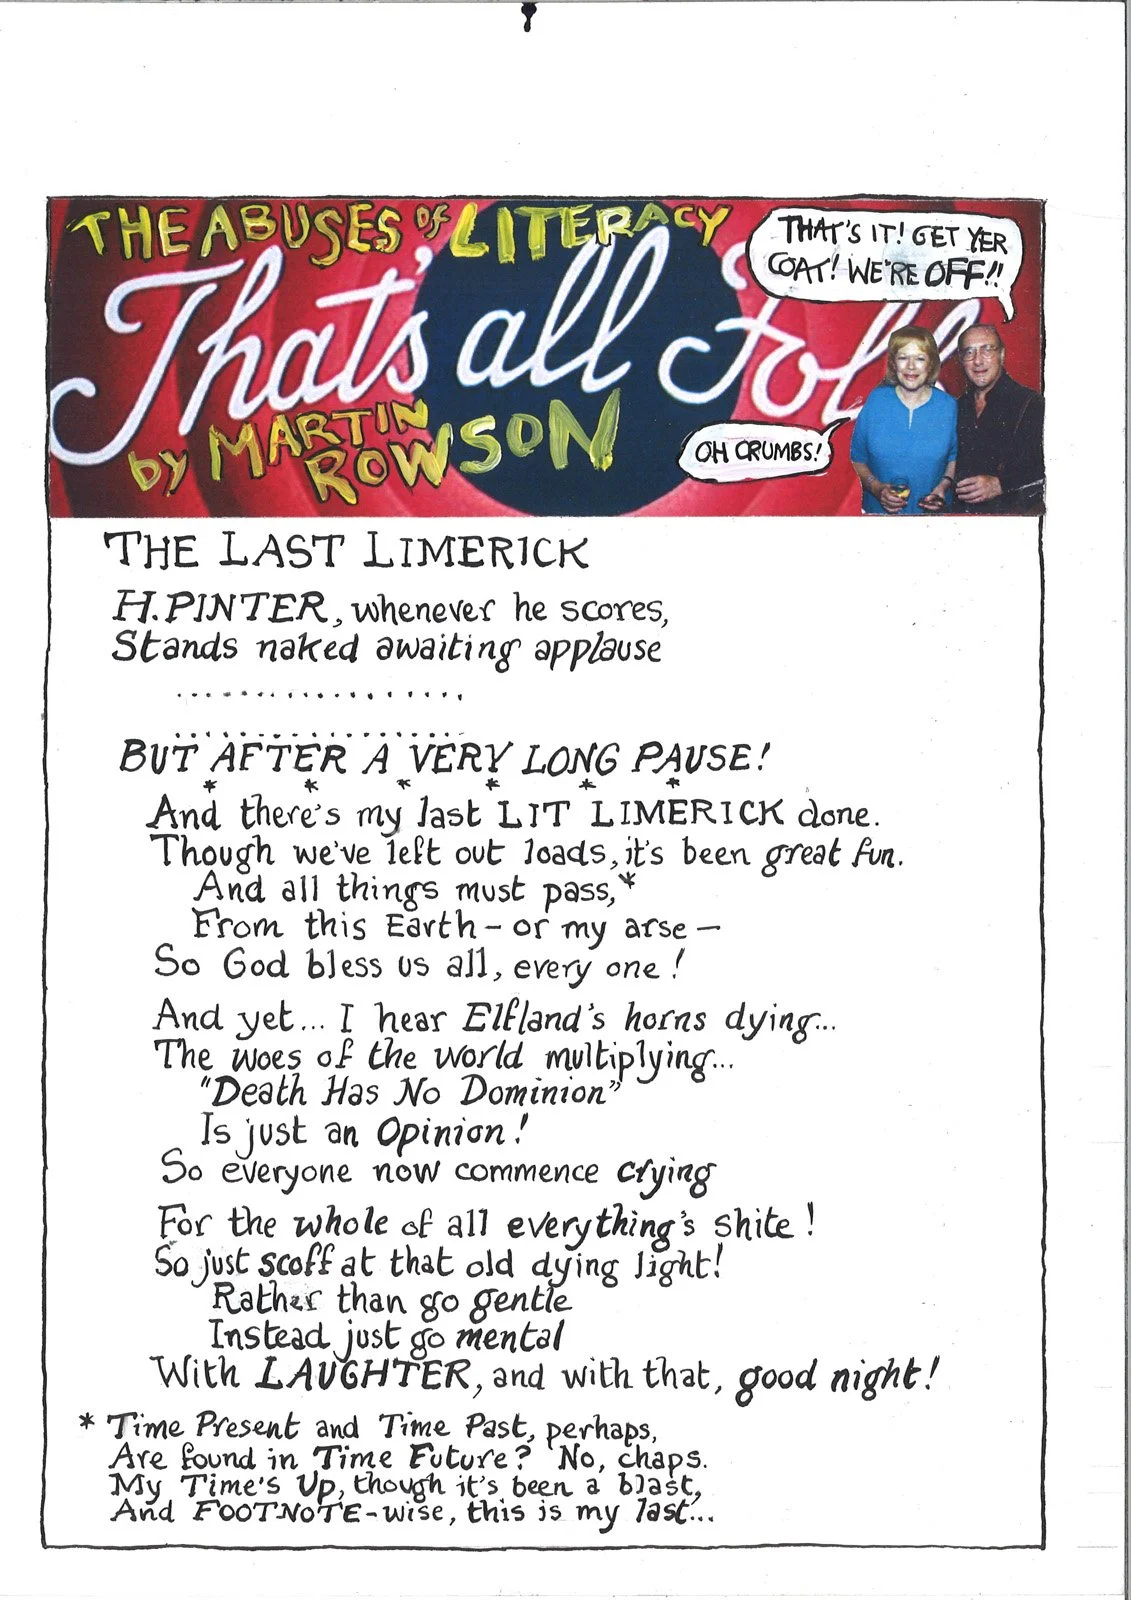 THE ABUSES OF LITERACY
That's all Fol
by MARTIN
ROWSON
THAT'S IT! GET YER
COAT! WE'RE OFF!!
OH CRUMBS!
THE LAST LIMERICK
H.PINTER, whenever he scores,
Stands naked awaiting applause
..................
..................
BUT AFTER A VERY LONG PAUSE!
* * * * * *
And there's my last LIT LIMERICK done.
Though we've left out loads, it's been great fun.
And all things must pass,*
From this Earth – or my arse –
So God bless us all, every one!
And yet... I hear Elfland's horns dying...
The woes of the world multiplying...
"Death Has No Dominion"
Is just an Opinion!
So everyone now commence crying
For the whole of all everything's shite!
So just scoff at that old dying light!
Rather than go gentle
Instead just go mental
With LAUGHTER, and with that, good night!
* Time Present and Time Past, perhaps,
Are found in Time Future? No, chaps.
My Time's Up, though it's been a blast,
And FOOTNOTE-wise, this is my last...